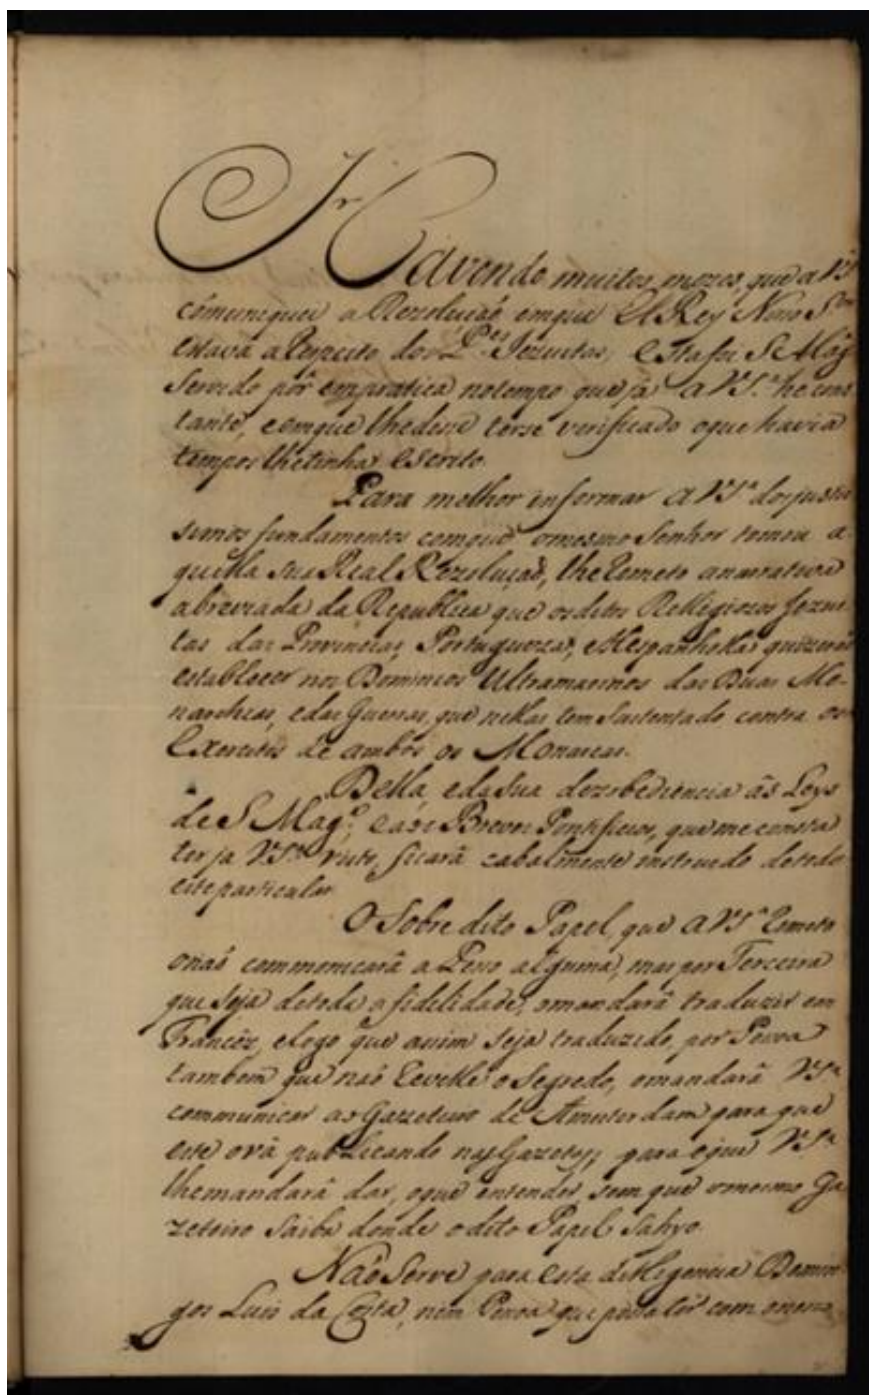 Havendo muitos mezes, que a VS.ª
cõmuniquei a Rezoluçaõ em que El Rey Nosso S.ʳ
estava a Respeito dos P.ᵉˢ Jezuitas, e esta foi S. Mag.
servido pôr em pratica no tempo que ja a VS.ª he cons
tante, com que lhe terse verificado o que havia
tempos lhe tinha escrito.
Para melhor informar a VS.ª dos justis
simos fundamentos com que o mesmo Senhor tomou a
quella sua Real Rezoluçaõ, lhe Remeto a narrativa
abreviada da Republica que os ditos Relligiozos Jezui
tas das Provincias Portuguezas, e Hespanhollas quizeraõ
establecer nos Dominios Ultramarinos das Duas Mo-
narchias, e das Guerras, que nellas tem sustentado contra os
Exercitos de ambos os Monarcas.
Della, e da sua dezobediencia ás Leys
de S. Mag.ᵉ, e aos Breves Pontificios, que me consta
ter ja VS.ª visto, ficará cabalmente instruido de todo
este particular.
O Sobre dito Papel, que a VS.ª Remeto
o naõ communicará a Pessoa alguma, mas por Terceira
que seja de toda a fidelidade, o mandará traduzir em
Francêz, e logo que assim seja traduzido, por Pessoa
tambem que naõ Revelle o Segredo, o mandará VS.ª
communicar ao Gazeteiro de Amsterdam para que
este o vá publicando nas Gazetas; para o que VS.ª
lhe mandará dar, o que entender, sem que o mesmo Ga
zeteiro saiba donde o dito Papel sahyo.
Naõ Serve para esta dilligencia Domin-
gos Luis da Costa, nem Pessoa que possa ter com o mesmo